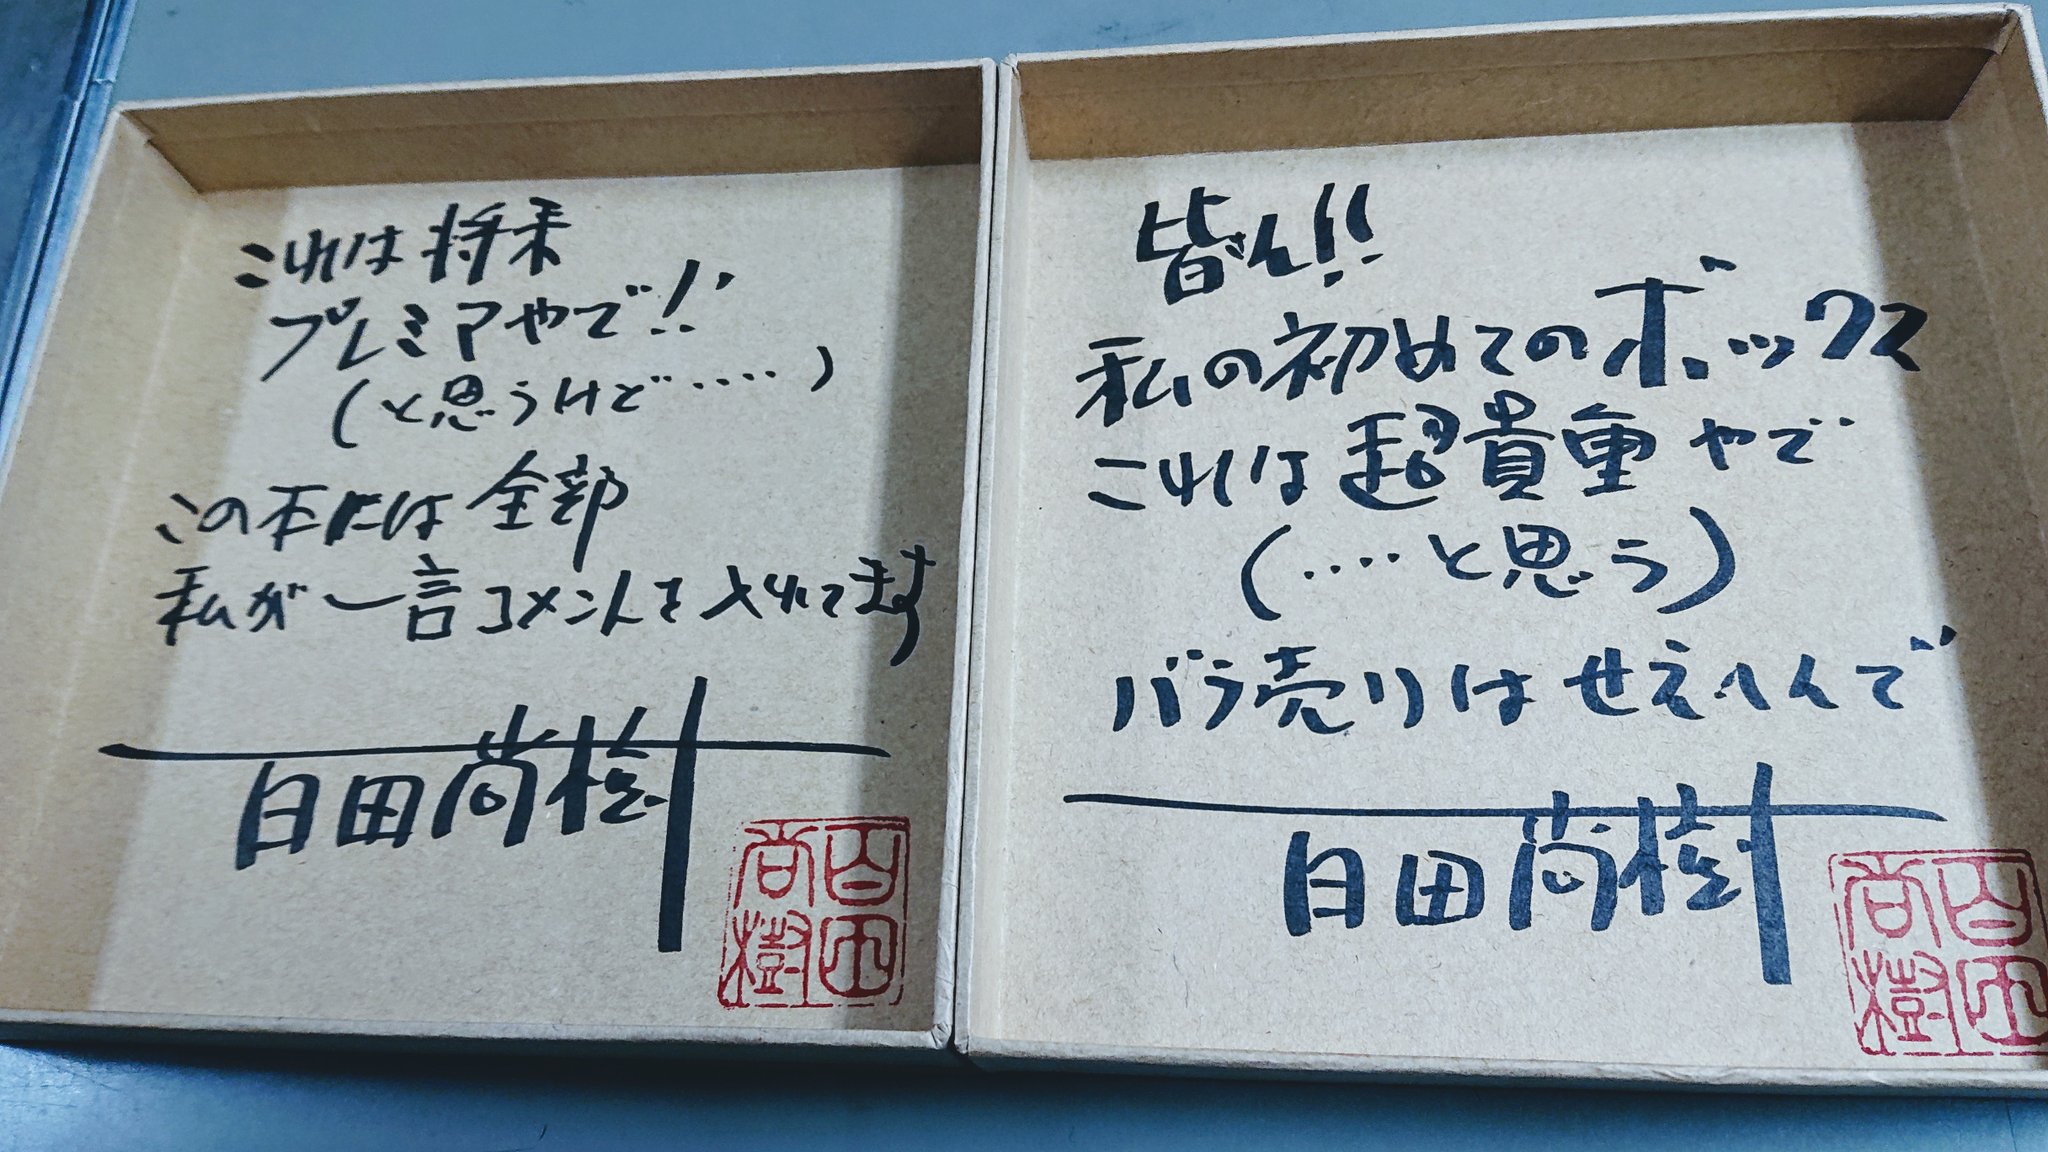 これは将来
プレミアやで!!
(と思うけど‥‥‥)
この本には全部
私が一言コメントを入れてます
百田尚樹
百田尚樹
皆さん!!
私の初めてのボックス
これは超貴重やで
(‥‥と思う)
バラ売りはせえへんで
百田尚樹
百田尚樹